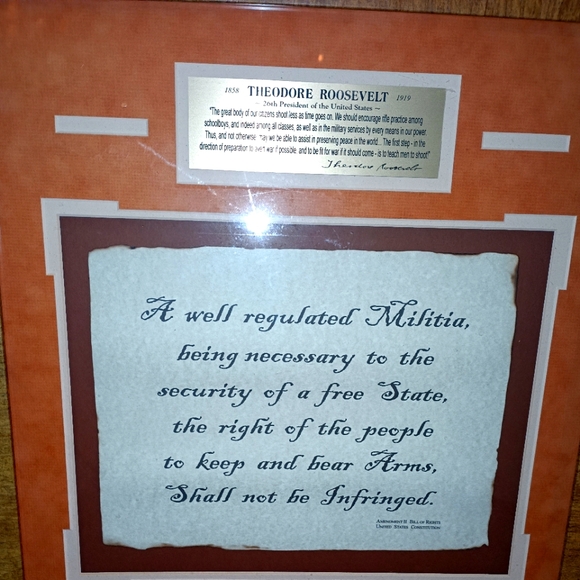 1858 THEODORE ROOSEVELT 1919
~ 26th President of the United States ~
"The great body of our citizens shoot less as time goes on. We should encourage rifle practice among
schoolboys, and indeed among all classes, as well as in the military services by every means in our power.
Thus, and not otherwise, may we be able to assist in preserving peace in the world... The first step - in the
direction of preparation to avert war if possible, and to be fit for war if it should come - is to teach men to shoot!"
Theodore Roosevelt
A well regulated Militia,
being necessary to the
security of a free State,
the right of the people
to keep and bear Arms,
Shall not be Infringed.
Amendment II Bill of Rights
United States Constitution